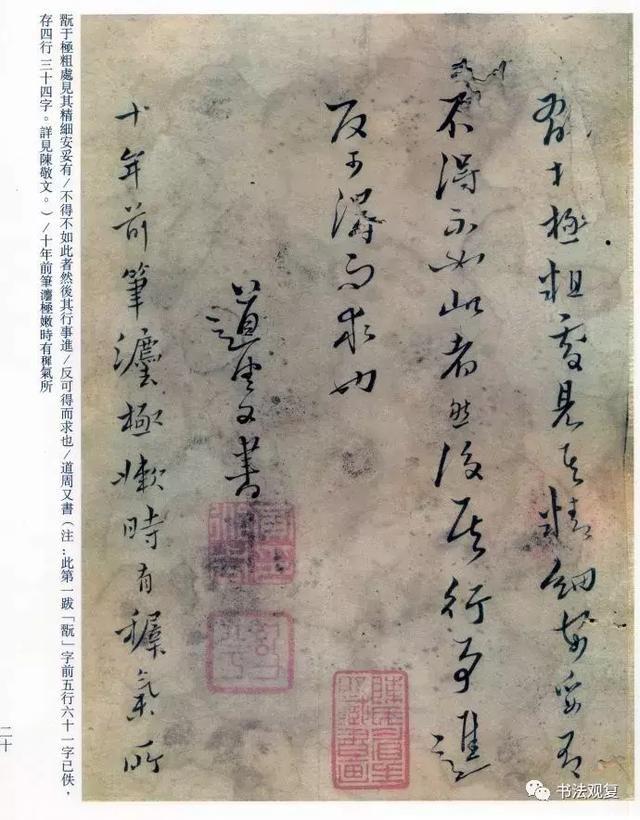 翫于極粗處見其精細安妥有
不得不如此者然後其行事進
反可得而求也
道周又書
十年前筆瀍極嫩時有穉氣所
翫于極粗處見其精細安妥有/不得不如此者然後其行事進/反可得而求也/道周又書（注：此第一跋「翫」字前五行六十一字已佚，
存四行三十四字。詳見陳敬文。）/十年前筆瀍極嫩時有穉氣所
二十
书法观复